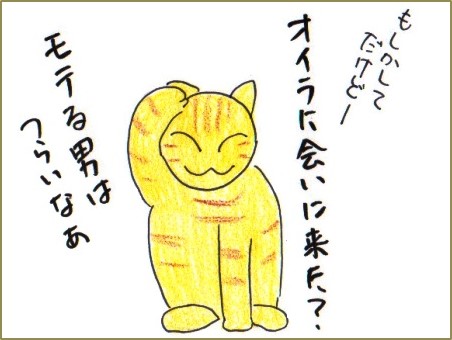 もしかして
だけどー
オイラに会いに来た?
モテる男は
つらいなぁ